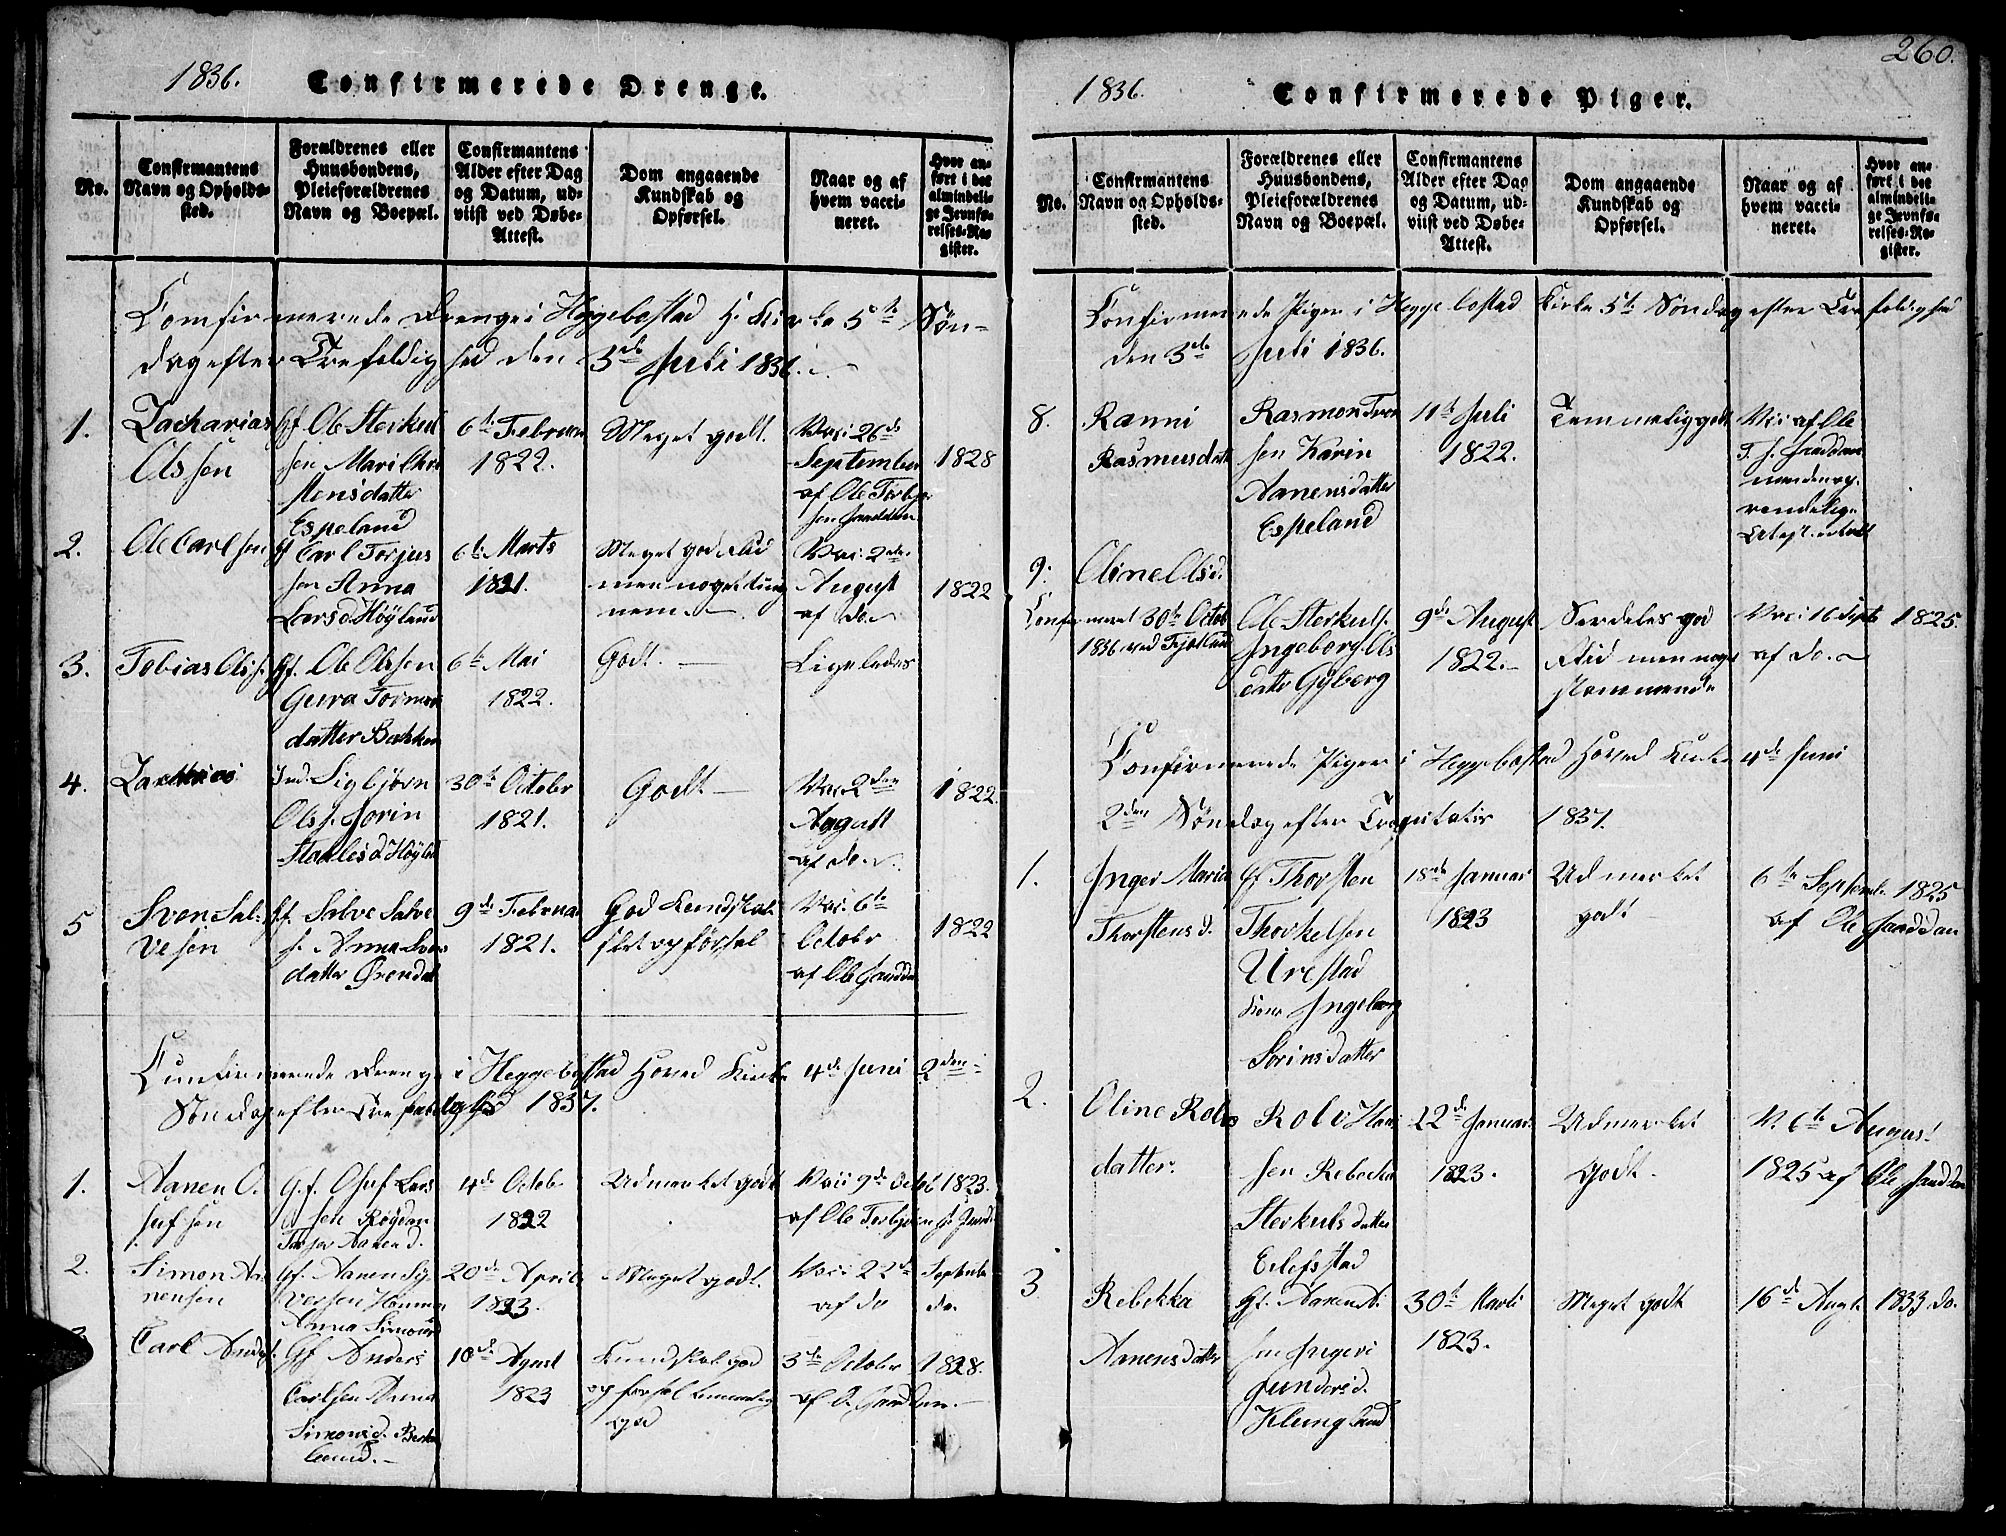 1836.
Confirmerede Drenge.
No.
Confirmantens
Navn og Opholds-
sted.
Forældrenes eller
Huusbondens,
Pleieforældrenes
Navn og Boepæl.
Confirmantens
Alder efter Dag
og Datum, ud-
viist ved Døbe-
Attest.
Dom angaaende
Kundskab og
Opførsel.
Naar og af
hvem vacci-
neret.
Hvor an-
ført i det
almindeli-
ge Jevnfø-
relses-Re-
gister.
Comfirmerede Drenge i Heggebostad H. Kirke 5te Søn-
dag efter Trefoldighed den 3de Juli 1836.
1.
Zacharias
Olssen
Gf. Ole Sterkul
sen Mari Chri
stensdatter
Espeland
6te Februar
1822.
Meget godt.
Vaci 26de
September
af Ole Torbjør
sen
1828
2.
Ole Carlsen
Gf Carl Torjus
sen Anna
Larsd. Höyland
6te Marts
1821.
Meget god Flid
men noget tung
nem.
Vac. 2den
August
af do.
1822
3.
Tobias Olss.
Gf. Ole Olssen
Guro Tormon
datter Bakken
6te Mai
1822.
Godt.
Ligeledes
4.
Zacharias
Ind. Sigbjørn
Olss. Jorin
Staalesd. Höyland
30te Octobr
1821.
Godt
Vac. 2den
August
af do.
1822.
5
Sven Sal-
vesen
Gf. Salve Salve
s. Anna Svens
datter Örendal
9de Februar
1821.
God Kundskab
flet opförsel
Vac. 6te
Octobr
af Ole
1822
Confirmerede Drenge i Heggebostad Hoved Kirke 4de Juni 2den
Søndag efter Trefoldighed 1837.
1.
Aanen O.
sufsen
G.f. Osuf Lars
sen Røydan
Aanend.
4de Octob
1822
Udmerket godt
Vaci 9de Octob 1823.
af Ole Torbjørns.
2.
Simon Aa
nensen
Gf. Aanen Sy
versen
Anna Simonsd
20de April
1823.
Meget godt.
Vaci 22de Septembr
af do do.
3
Carl Anders.
Gf Anders
Carlsen Anna
Simonsd. Birke
land.
10de Agust
1823
Kundskab god
opførsel temmelig
god
3de October 1828.
af O.
260.
1836.
Confirmerede Piger.
No.
Confirmantens
Navn og Opholds-
sted.
Forældrenes eller
Huusbondens,
Pleieforældrenes
Navn og Boepæl.
Confirmantens
Alder efter Dag
og Datum, ud-
viist ved Døbe-
Attest.
Dom angaaende
Kundskab og
Opførsel.
Naar og af
hvem vacci-
neret.
Hvor an-
ført i det
almindeli-
ge Jevnfø-
relses-Re-
gister.
Confirmerede Piger i Heggebostad Kirke 5te Søndag efter Trefoldighed
den 3de Juli 1836.
8.
Ranni
Rasmusdatt
Rasmon Tron
sen Karin
Aanensdatter
Espeland
11te Juli
1822.
Temmeligg
Vaci af Ole
T. S.
9.
Oline Olsd.
Confirmeret 30te Octob
1836 ved Fjotland
Ole Sterkuls.
Ingeborg Ols
datter Gyberg
9de August
1822.
Serdeles god
Flid men noget
stammende
Vaci 16 Septb
af do.
1825.
Confirmerede Piger i Heggebostad Hoved Kirke 4de Juni
2den Søndag efter 1837.
1.
Inger Maria
Thorstensd.
Gf Thorsten
Thorkelsen
Urestad
Kone Ingeborg
Sorinsdatter
18de Januar
1823
Udmerket
godt
6te Septembr 1825
af Ole
2.
Oline Rolvs
datter.
Rolv Han
sen Rebecka
Sterkulsdatter
Eilefsstad
22de Januar
1823.
Udmerket
Godt.
V. 6te August
1825 af Ole
3
Rebekka
Aanensdatter
Gf. Aanen A.
sen Ingeri
Gundersd.
Klungland
30te Marti
1823.
Meget godt
16de Augt. 1833 do.